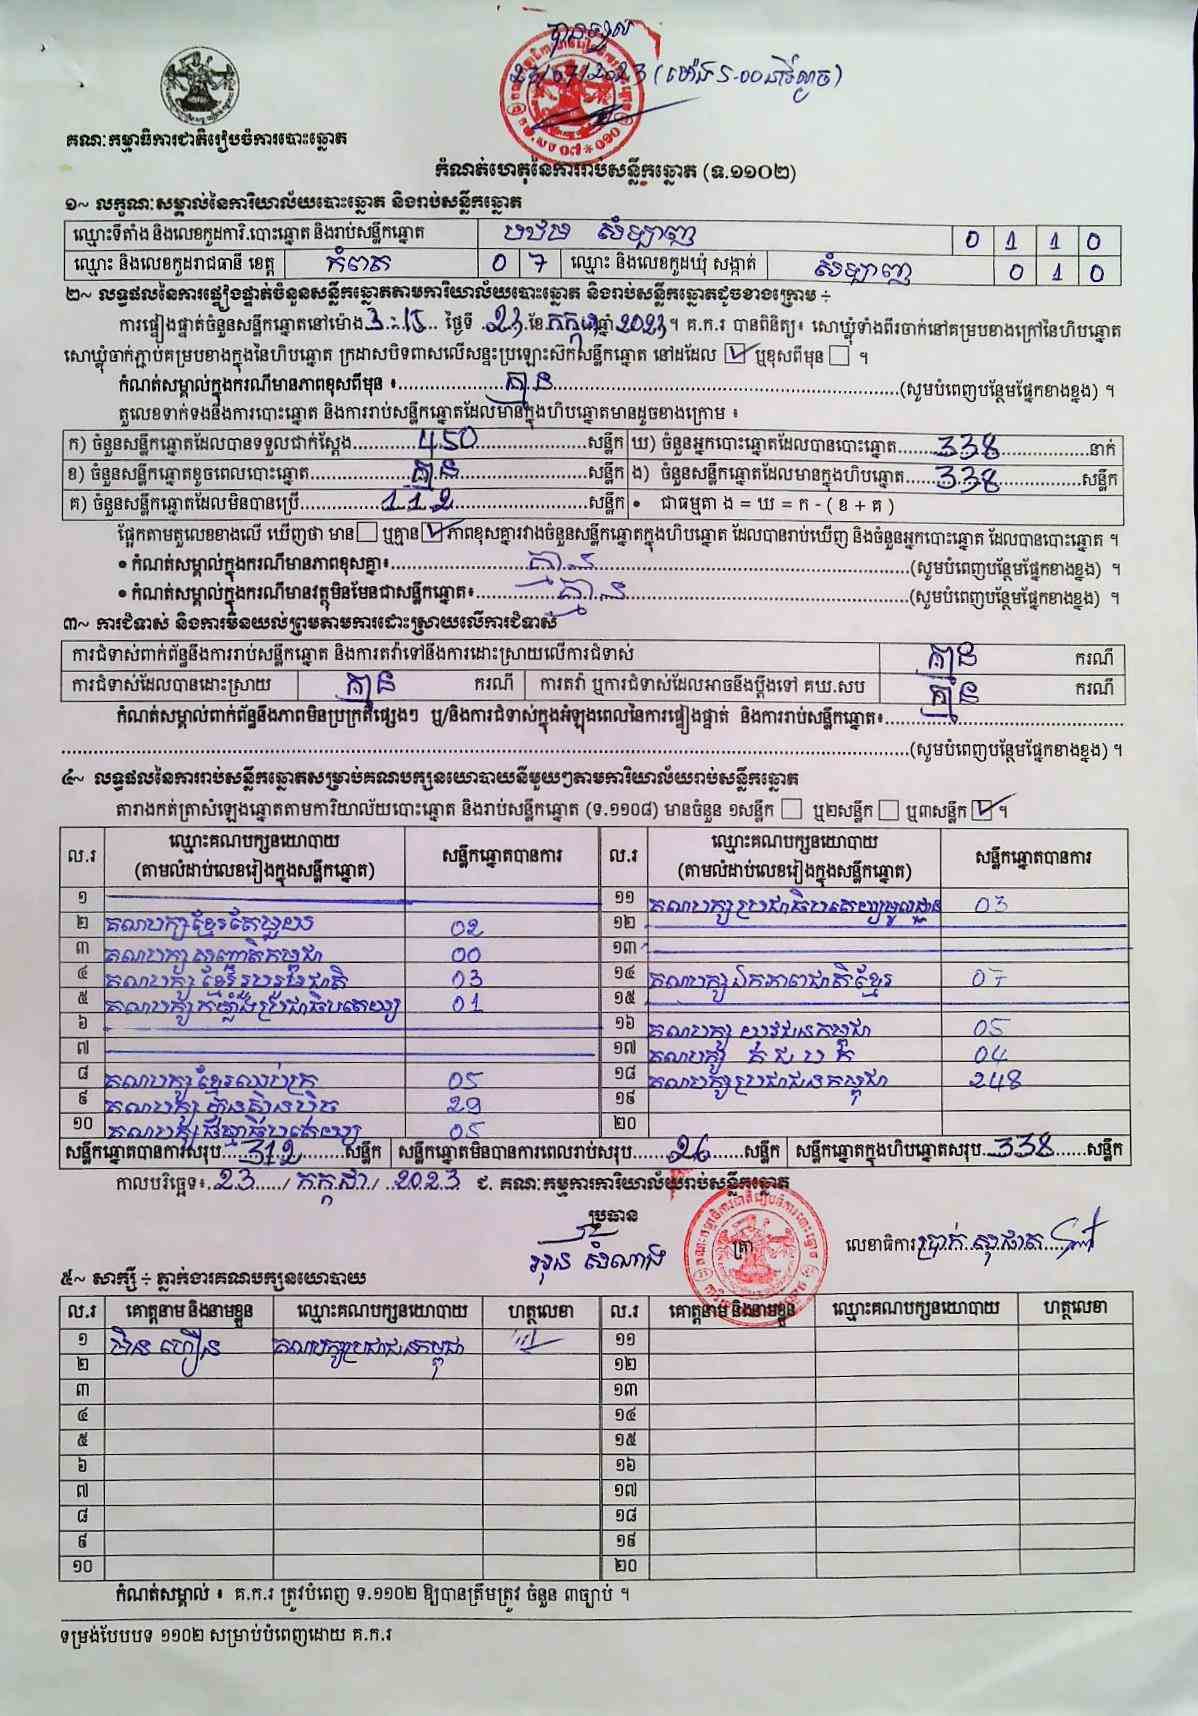 បានចូល
23/07/2023 (ម៉ោង 5-00 នាទីល្ងាច)
គណៈកម្មាធិការជាតិរៀបចំការបោះឆ្នោត
កំណត់ហេតុនៃការរាប់សន្លឹកឆ្នោត (ទ.១១០២)
១~ លក្ខណៈសម្គាល់នៃការិយាល័យបោះឆ្នោត និងរាប់សន្លឹកឆ្នោត
ឈ្មោះទីតាំង និងលេខកូដការិ.បោះឆ្នោត និងរាប់សន្លឹកឆ្នោត បឋម សំឡាញ 0 1 1 0
ឈ្មោះ និងលេខកូដរាជធានី ខេត្ត កំពត 0 7 ឈ្មោះ និងលេខកូដឃុំ សង្កាត់ សំឡាញ 0 1 0
២~ លទ្ធផលនៃការផ្ទៀងផ្ទាត់ចំនួនសន្លឹកឆ្នោតតាមការិយាល័យបោះឆ្នោត និងរាប់សន្លឹកឆ្នោតដូចខាងក្រោម ÷
ការផ្ទៀងផ្ទាត់ចំនួនសន្លឹកឆ្នោតនៅម៉ោង 3:15 ថ្ងៃទី 23 ខែ កក្កដា ឆ្នាំ 2023 ។ គ.ក.រ បានពិនិត្យ៖ សោឃ្លុំទាំងពីរចាក់នៅគម្របខាងក្រៅនៃហិបឆ្នោត
សោឃ្លុំចាក់ភ្ជាប់គម្របខាងក្នុងនៃហិបឆ្នោត ក្រដាសបិទពាសលើសន្ទះប្រឡោះស៊កសន្លឹកឆ្នោត នៅដដែល ☑ ឬខុសពីមុន ☐ ។
កំណត់សម្គាល់ក្នុងករណីមានភាពខុសពីមុន ៖ គ្មាន (សូមបំពេញបន្ថែមផ្នែកខាងខ្នង) ។
តួលេខទាក់ទងនឹងការបោះឆ្នោត និងការរាប់សន្លឹកឆ្នោតដែលមានក្នុងហិបឆ្នោតមានដូចខាងក្រោម ៖
ក) ចំនួនសន្លឹកឆ្នោតដែលបានទទួលជាក់ស្តែង 450 សន្លឹក ឃ) ចំនួនអ្នកបោះឆ្នោតដែលបានបោះឆ្នោត 338 នាក់
ខ) ចំនួនសន្លឹកឆ្នោតខូចពេលបោះឆ្នោត គ្មាន សន្លឹក ង) ចំនួនសន្លឹកឆ្នោតដែលមានក្នុងហិបឆ្នោត 338 សន្លឹក
គ) ចំនួនសន្លឹកឆ្នោតដែលមិនបានប្រើ 112 សន្លឹក • ជាធម្មតា ង = ឃ = ក - ( ខ + គ )
ផ្អែកតាមតួលេខខាងលើ ឃើញថា មាន ☐ ឬគ្មាន ☑ ភាពខុសគ្នារវាងចំនួនសន្លឹកឆ្នោតក្នុងហិបឆ្នោត ដែលបានរាប់ឃើញ និងចំនួនអ្នកបោះឆ្នោត ដែលបានបោះឆ្នោត ។
• កំណត់សម្គាល់ក្នុងករណីមានភាពខុសគ្នា៖ គ្មាន (សូមបំពេញបន្ថែមផ្នែកខាងខ្នង) ។
• កំណត់សម្គាល់ក្នុងករណីមានវត្ថុមិនមែនជាសន្លឹកឆ្នោត៖ គ្មាន (សូមបំពេញបន្ថែមផ្នែកខាងខ្នង) ។
៣~ ការជំទាស់ និងការមិនយល់ព្រមតាមការដោះស្រាយលើការជំទាស់
ការជំទាស់ពាក់ព័ន្ធនឹងការរាប់សន្លឹកឆ្នោត និងការតវ៉ាទៅនឹងការដោះស្រាយលើការជំទាស់ គ្មាន ករណី
ការជំទាស់ដែលបានដោះស្រាយ គ្មាន ករណី ការតវ៉ា ឬការជំទាស់ដែលអាចនឹងប្តឹងទៅ គឃ.សប គ្មាន ករណី
កំណត់សម្គាល់ពាក់ព័ន្ធនឹងភាពមិនប្រក្រតីផ្សេងៗ ឬ/និងការជំទាស់ក្នុងអំឡុងពេលនៃការផ្ទៀងផ្ទាត់ និងការរាប់សន្លឹកឆ្នោត៖
(សូមបំពេញបន្ថែមផ្នែកខាងខ្នង) ។
៤~ លទ្ធផលនៃការរាប់សន្លឹកឆ្នោតសម្រាប់គណបក្សនយោបាយនីមួយៗតាមការិយាល័យរាប់សន្លឹកឆ្នោត
តារាងកត់ត្រាសំឡេងឆ្នោតតាមការិយាល័យបោះឆ្នោត និងរាប់សន្លឹកឆ្នោត (ទ.១១០៨) មានចំនួន ១សន្លឹក ☐ ឬ២សន្លឹក ☐ ឬ៣សន្លឹក ☑ ។
ល.រ ឈ្មោះគណបក្សនយោបាយ (តាមលំដាប់លេខរៀងក្នុងសន្លឹកឆ្នោត) សន្លឹកឆ្នោតបានការ ល.រ ឈ្មោះគណបក្សនយោបាយ (តាមលំដាប់លេខរៀងក្នុងសន្លឹកឆ្នោត) សន្លឹកឆ្នោតបានការ
១ ១១ គណបក្សប្រជាធិបតេយ្យមូលដ្ឋាន 03
២ គណបក្សខ្មែរតែមួយ 02 ១២
៣ គណបក្សសញ្ជាតិកម្ពុជា 00 ១៣
៤ គណបក្សខ្មែររួបរួមជាតិ 03 ១៤ គណបក្សឯកភាពជាតិខ្មែរ 07
៥ គណបក្សកម្លាំងប្រជាធិបតេយ្យ 01 ១៥
៦ ១៦ គណបក្ស យុវជនកម្ពុជា 05
៧ ១៧ គណបក្ស ក ជ ប ក 04
៨ គណបក្សខ្មែរឈប់ក្រ 05 ១៨ គណបក្សប្រជាជនកម្ពុជា 248
៩ គណបក្ស ហ្វ៊ុនស៊ិនប៉ិច 29 ១៩
១០ គណបក្សធម្មាធិបតេយ្យ 05 ២០
សន្លឹកឆ្នោតបានការសរុប 312 សន្លឹក សន្លឹកឆ្នោតមិនបានការពេលរាប់សរុប 26 សន្លឹក សន្លឹកឆ្នោតក្នុងហិបឆ្នោតសរុប 338 សន្លឹក
កាលបរិច្ឆេទ៖ 23 / កក្កដា / 2023 ជ. គណៈកម្មការការិយាល័យរាប់សន្លឹកឆ្នោត
ប្រធាន
អុន សំណាង ត្រា លេខាធិការ ប្រាក់ សុផាត
៥~ សាក្សី ÷ ភ្នាក់ងារគណបក្សនយោបាយ
ល.រ គោត្តនាម និងនាមខ្លួន ឈ្មោះគណបក្សនយោបាយ ហត្ថលេខា ល.រ គោត្តនាម និងនាមខ្លួន ឈ្មោះគណបក្សនយោបាយ ហត្ថលេខា
១ ម៉ិន ហឿន គណបក្សប្រជាជនកម្ពុជា ១១
២ ១២
៣ ១៣
៤ ១៤
៥ ១៥
៦ ១៦
៧ ១៧
៨ ១៨
៩ ១៩
១០ ២០
កំណត់សម្គាល់ ៖ គ.ក.រ ត្រូវបំពេញ ទ.១១០២ ឱ្យបានត្រឹមត្រូវ ចំនួន ៣ច្បាប់ ។
ទម្រង់បែបបទ ១១០២ សម្រាប់បំពេញដោយ គ.ក.រ